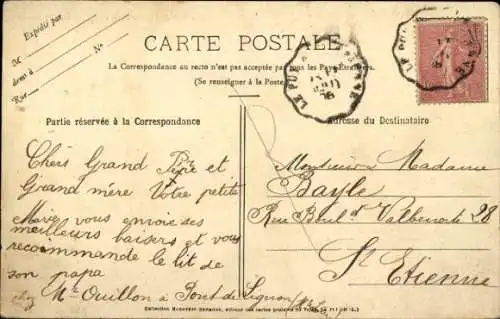 Expédié par
M
demt à
N°
Rue
CARTE POSTALE
La Correspondance au recto n'est pas acceptée par tous les Pays Étrangers.
(Se renseigner à la Poste)
LE PUY
Partie réservée à la Correspondance
Adresse du Destinataire
Chers Grand Père et
Grand mère Votre petite
Marie vous envoie ses
meilleurs baisers et vous
recommande le lit de
son papa
chez Mr Ouillon à Pont de Lignon
Monsieur Madame
Bayle
Rue Boul. d Valbenoite 28
St Etienne